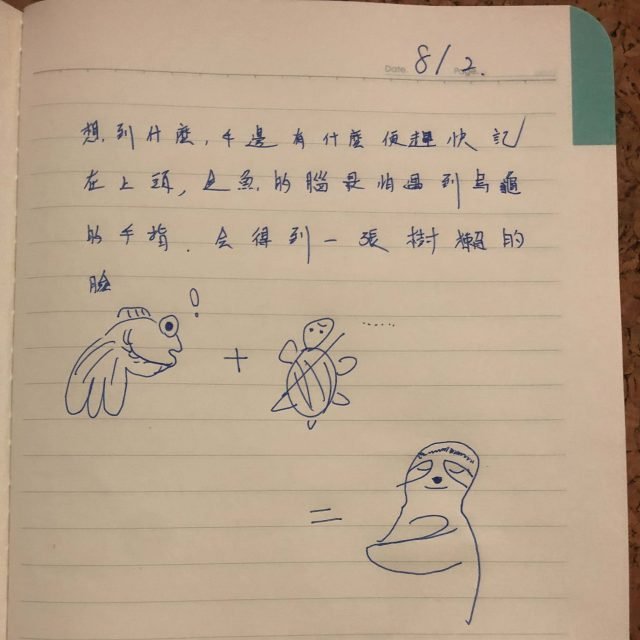 Date. 8/2. Page.
想到什麼，手邊有什麼便趕快記
在上頭，金魚的腦最怕遇到烏龜
的手指．会得到一張樹懶的
臉
!
+
......
=